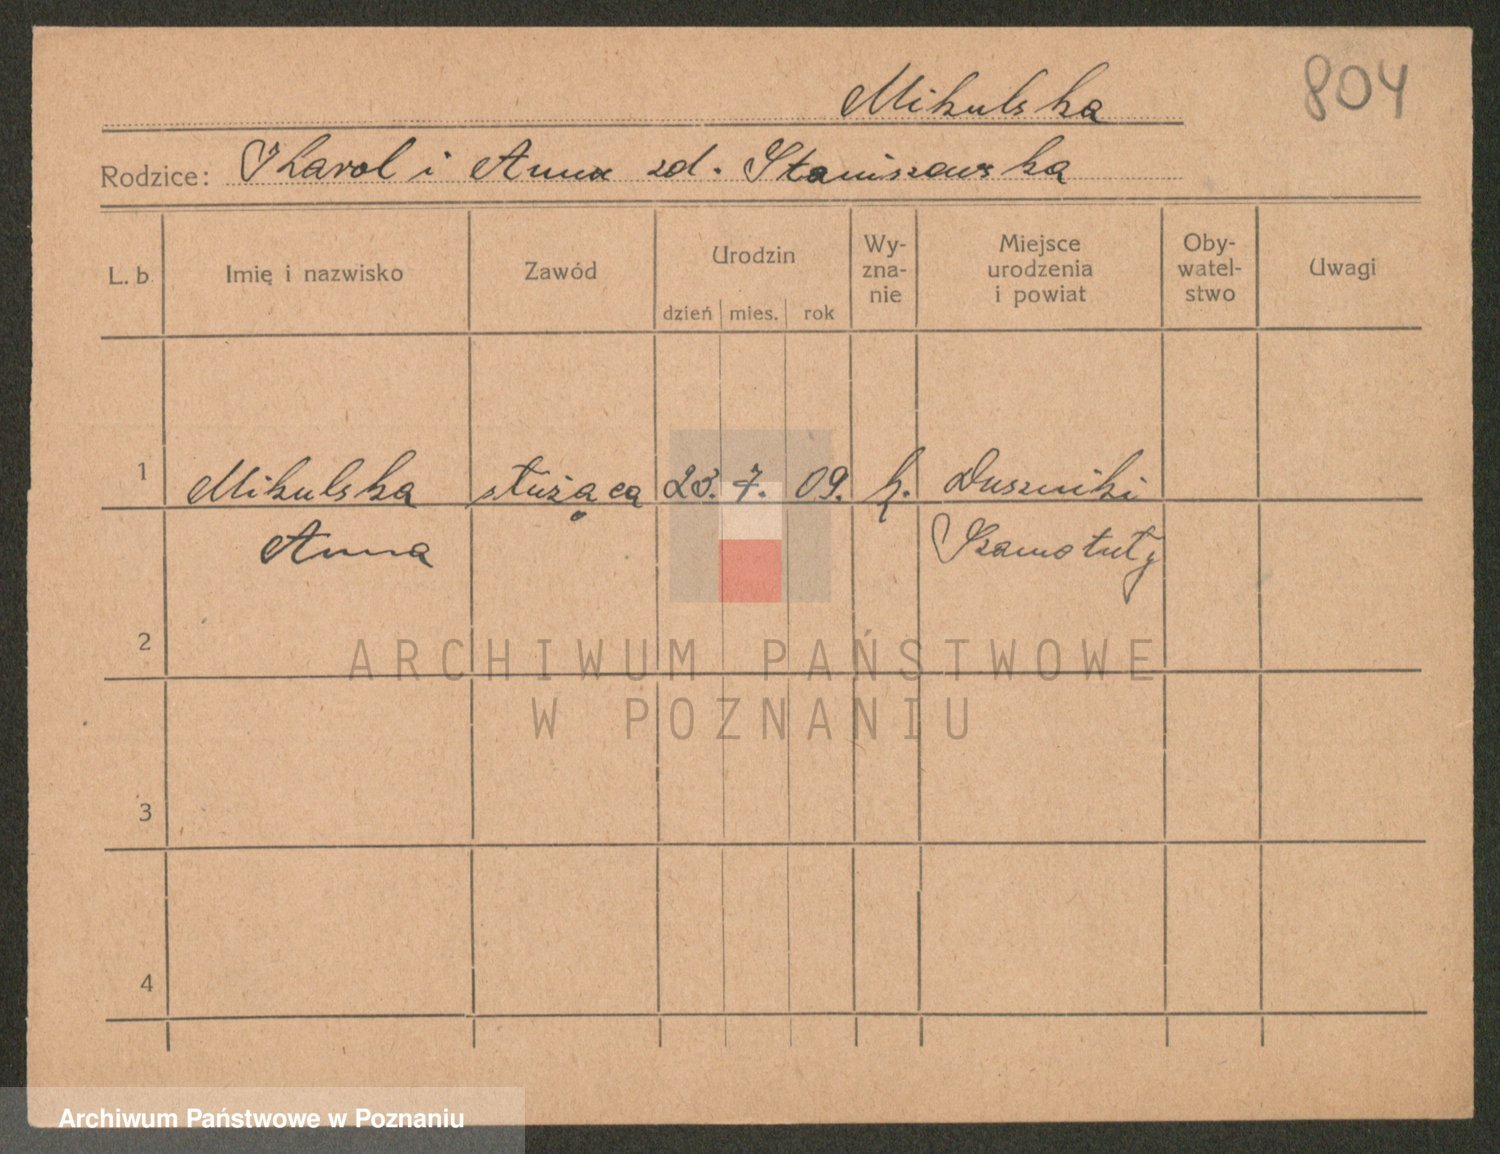 Mikulska
804
Rodzice: Karol i Anna zd. Staniszewska
L. b.
Imię i nazwisko
Zawód
Urodzin
dzień mies. rok
Wy-
zna-
nie
Miejsce
urodzenia
i powiat
Oby-
watel-
stwo
Uwagi
1 Mikulska służąca 23. 7. 09. k. Duszniki
Anna Szamotuły
2
ARCHIWUM PAŃSTWOWE
W POZNANIU
3
4
Archiwum Państwowe w Poznaniu